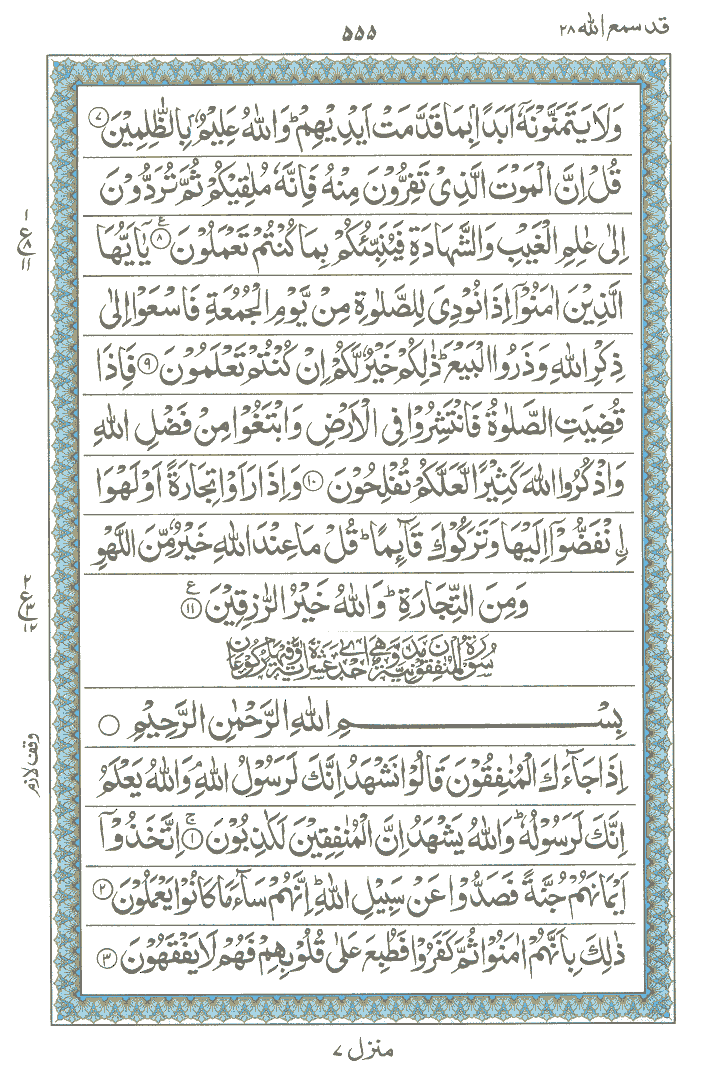 قد سمع الله ٢٨
٥٥٥
وَلَا يَتَمَنَّوْنَهٗۤ اَبَدًۢا بِمَا قَدَّمَتْ اَيْدِيْهِمْ ؕ وَاللّٰهُ عَلِيْمٌۢ بِالظّٰلِمِيْنَ ۷
قُلْ اِنَّ الْمَوْتَ الَّذِيْ تَفِرُّوْنَ مِنْهُ فَاِنَّهٗ مُلٰقِيْكُمْ ثُمَّ تُرَدُّوْنَ
اِلٰى عٰلِمِ الْغَيْبِ وَالشَّهَادَةِ فَيُنَبِّئُكُمْ بِمَا كُنْتُمْ تَعْمَلُوْنَ ۸ ع يٰۤاَيُّهَا
الَّذِيْنَ اٰمَنُوْۤا اِذَا نُوْدِيَ لِلصَّلٰوةِ مِنْ يَّوْمِ الْجُمُعَةِ فَاسْعَوْا اِلٰى
ذِكْرِ اللّٰهِ وَذَرُوا الْبَيْعَ ؕ ذٰلِكُمْ خَيْرٌ لَّكُمْ اِنْ كُنْتُمْ تَعْلَمُوْنَ ۹ فَاِذَا
قُضِيَتِ الصَّلٰوةُ فَانْتَشِرُوْا فِي الْاَرْضِ وَابْتَغُوْا مِنْ فَضْلِ اللّٰهِ
وَاذْكُرُوا اللّٰهَ كَثِيْرًا لَّعَلَّكُمْ تُفْلِحُوْنَ ۱۰ وَاِذَا رَاَوْا تِجَارَةً اَوْ لَهْوَا
ۨ انْفَضُّوْۤا اِلَيْهَا وَتَرَكُوْكَ قَآئِمًا ؕ قُلْ مَا عِنْدَ اللّٰهِ خَيْرٌ مِّنَ اللَّهْوِ
وَمِنَ التِّجَارَةِ ؕ وَاللّٰهُ خَيْرُ الرّٰزِقِيْنَ ۱۱ ع
سُوْرَةُ الْمُنٰفِقُوْنَ مَدَنِيَّةٌ وَّهِيَ اِحْدٰى عَشْرَةَ اٰيَةً وَّفِيْهَا رُكُوْعَانِ
بِسْــــــــــــــــمِ اللّٰهِ الرَّحْمٰنِ الرَّحِيْمِ
اِذَا جَآءَكَ الْمُنٰفِقُوْنَ قَالُوْا نَشْهَدُ اِنَّكَ لَرَسُوْلُ اللّٰهِ ۘ وَاللّٰهُ يَعْلَمُ
اِنَّكَ لَرَسُوْلُهٗ ؕ وَاللّٰهُ يَشْهَدُ اِنَّ الْمُنٰفِقِيْنَ لَكٰذِبُوْنَ ۱ ۚ اِتَّخَذُوْۤا
اَيْمَانَهُمْ جُنَّةً فَصَدُّوْا عَنْ سَبِيْلِ اللّٰهِ ؕ اِنَّهُمْ سَآءَ مَا كَانُوْا يَعْمَلُوْنَ ۲
ذٰلِكَ بِاَنَّهُمْ اٰمَنُوْا ثُمَّ كَفَرُوْا فَطُبِعَ عَلٰى قُلُوْبِهِمْ فَهُمْ لَا يَفْقَهُوْنَ ۳
۱
ع ۸
۱۱
۲
ع ۳
۱۲
وقف لازم
منزل ۷